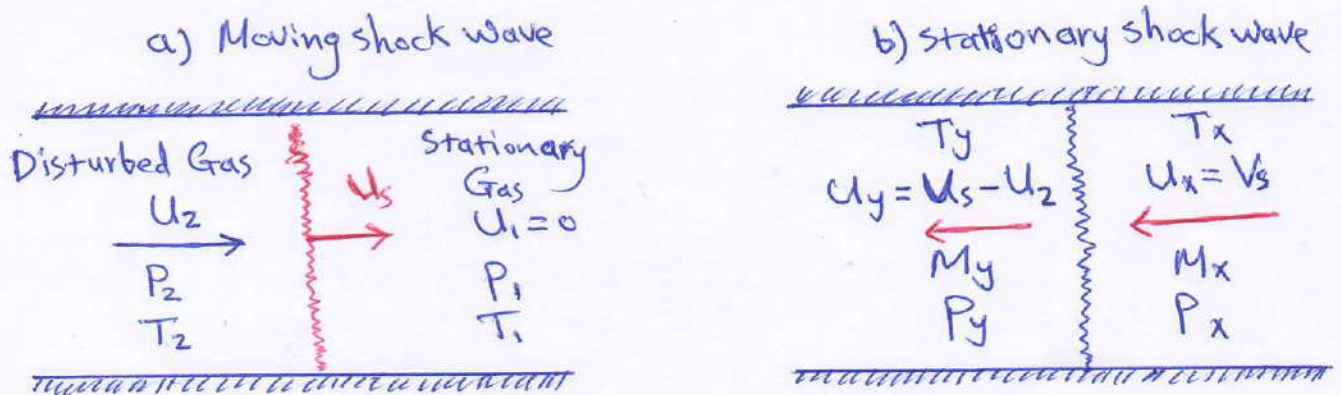 a) Moving shock wave
Disturbed Gas
U₂
P₂
T₂
Us
Stationary
Gas
U₁ = 0
P₁
T₁
b) stationary shock wave
Ty
Uy = Us - U₂
My
Py
Tx
Ux = Vs
Mx
Px